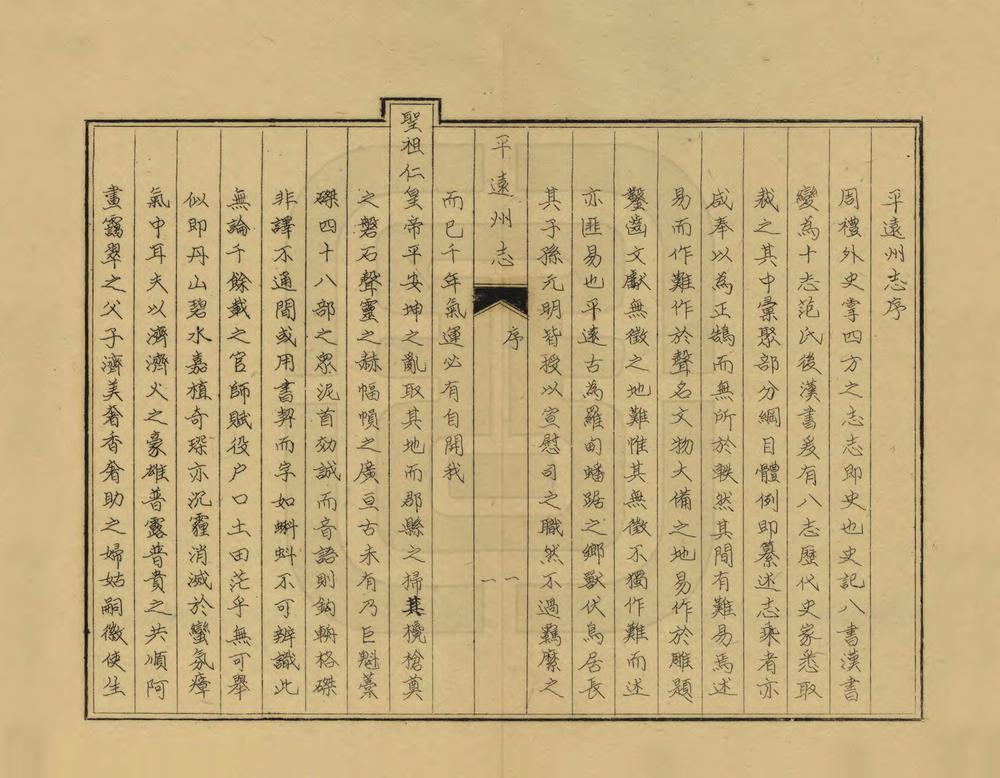 平遠州志序
周禮外史掌四方之志志即史也史記八書漢書
變為十志范氏後漢書爰有八志歷代史家悉取
裁之其中彙聚部分綱目體例即纂述志乘者亦
咸奉以為正鵠而無所於軼然其間有難易焉述
易而作難作於聲名文物大備之地易作於雕題
鑿齒文獻無徵之地難惟其無徵不獨作難而述
亦匪易也平遠古為羅甸蟠踞之鄉獸伏鳥居長
其子孫元明皆授以宣慰司之職然不過羈縻之
平遠州志
序
一
一
而已千年氣運必有自開我
聖祖仁皇帝平安坤之亂取其地而郡縣之掃其欃槍奠
之磐石聲靈之赫幅𢄙之廣亘古未有乃巨魁藁
磔四十八部之眾泥首効誠而音語則鈎輈格磔
非譯不通間或用書契而字如蝌蚪不可辨識此
無論千餘載之官師賦役户口土田茫乎無可舉
似即丹山碧水嘉植奇琛亦沉霾消滅於蠻氛瘴
氣中耳夫以濟濟火之豪雄普露普貴之共順阿
畫靄翠之父子濟美奢香奢助之婦姑嗣徽使生